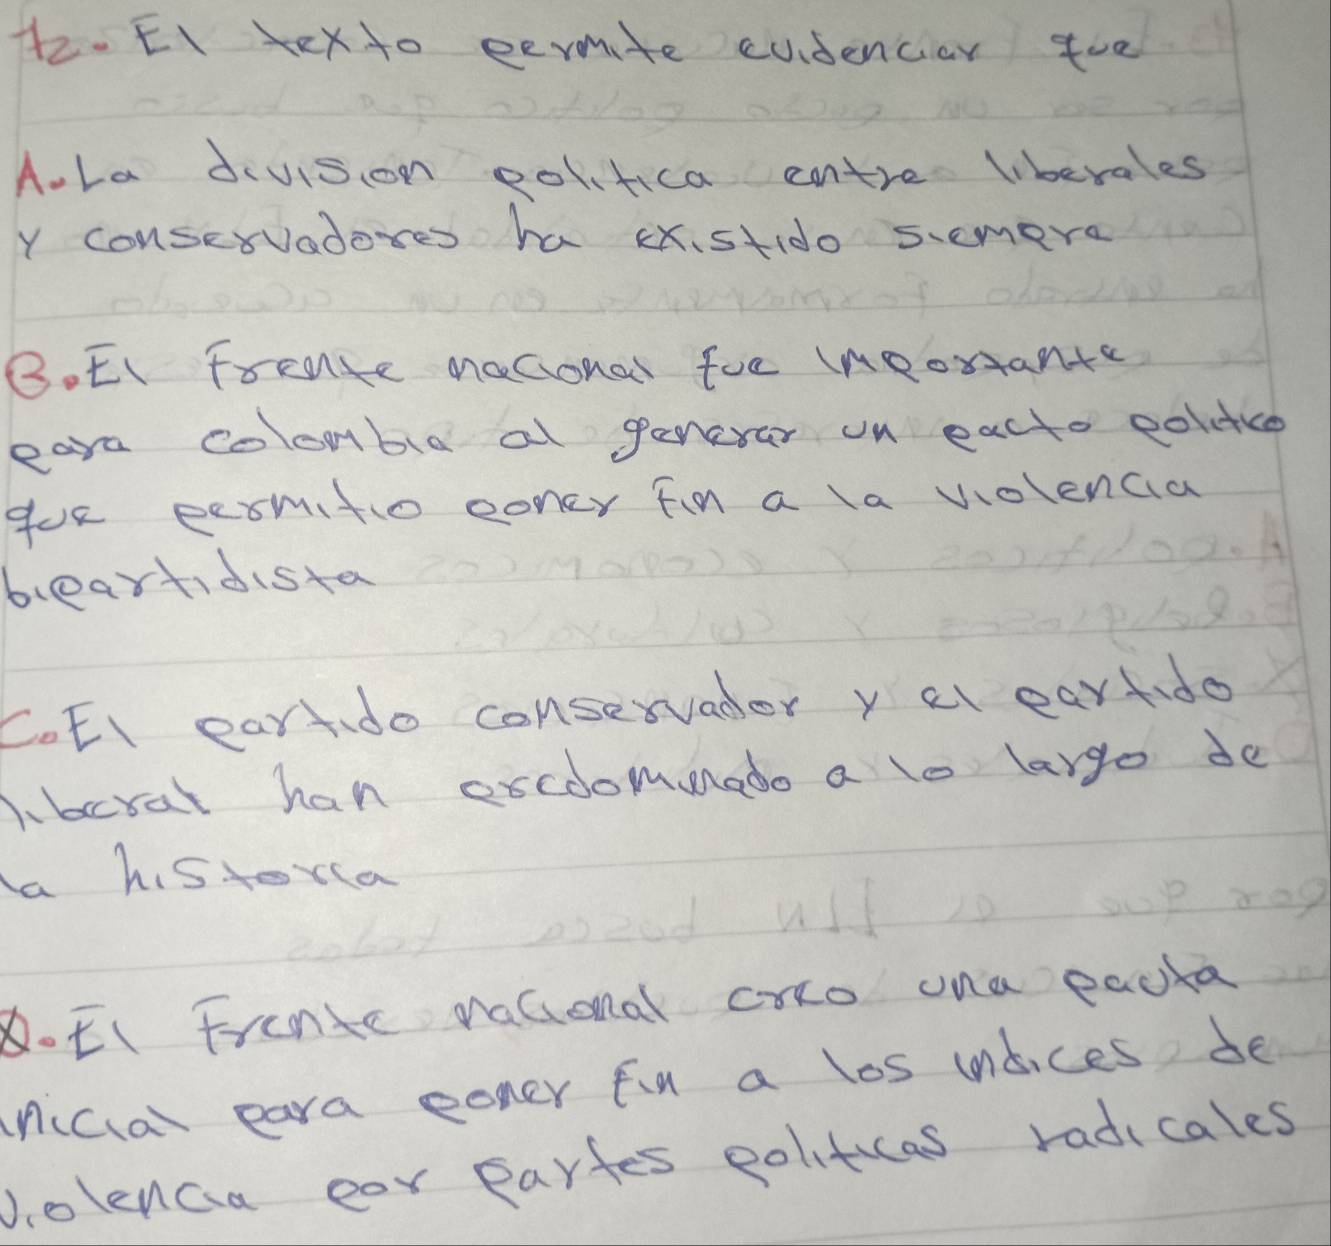 12. El texto permite evidenciar que
A. La division politica entre liberales
y conservadores ha existido siempre
B. El Frente nacional fue importante
para colombia al generar un pacto politico
que permitio poner fin a la violencia
bipartidista
C. El partido conservador y el partido
liberal han predominado a lo largo de
la historia
D. El Frente nacional creo una pauta
inicial para poner fin a los indices de
violencia por partes politicas radicales